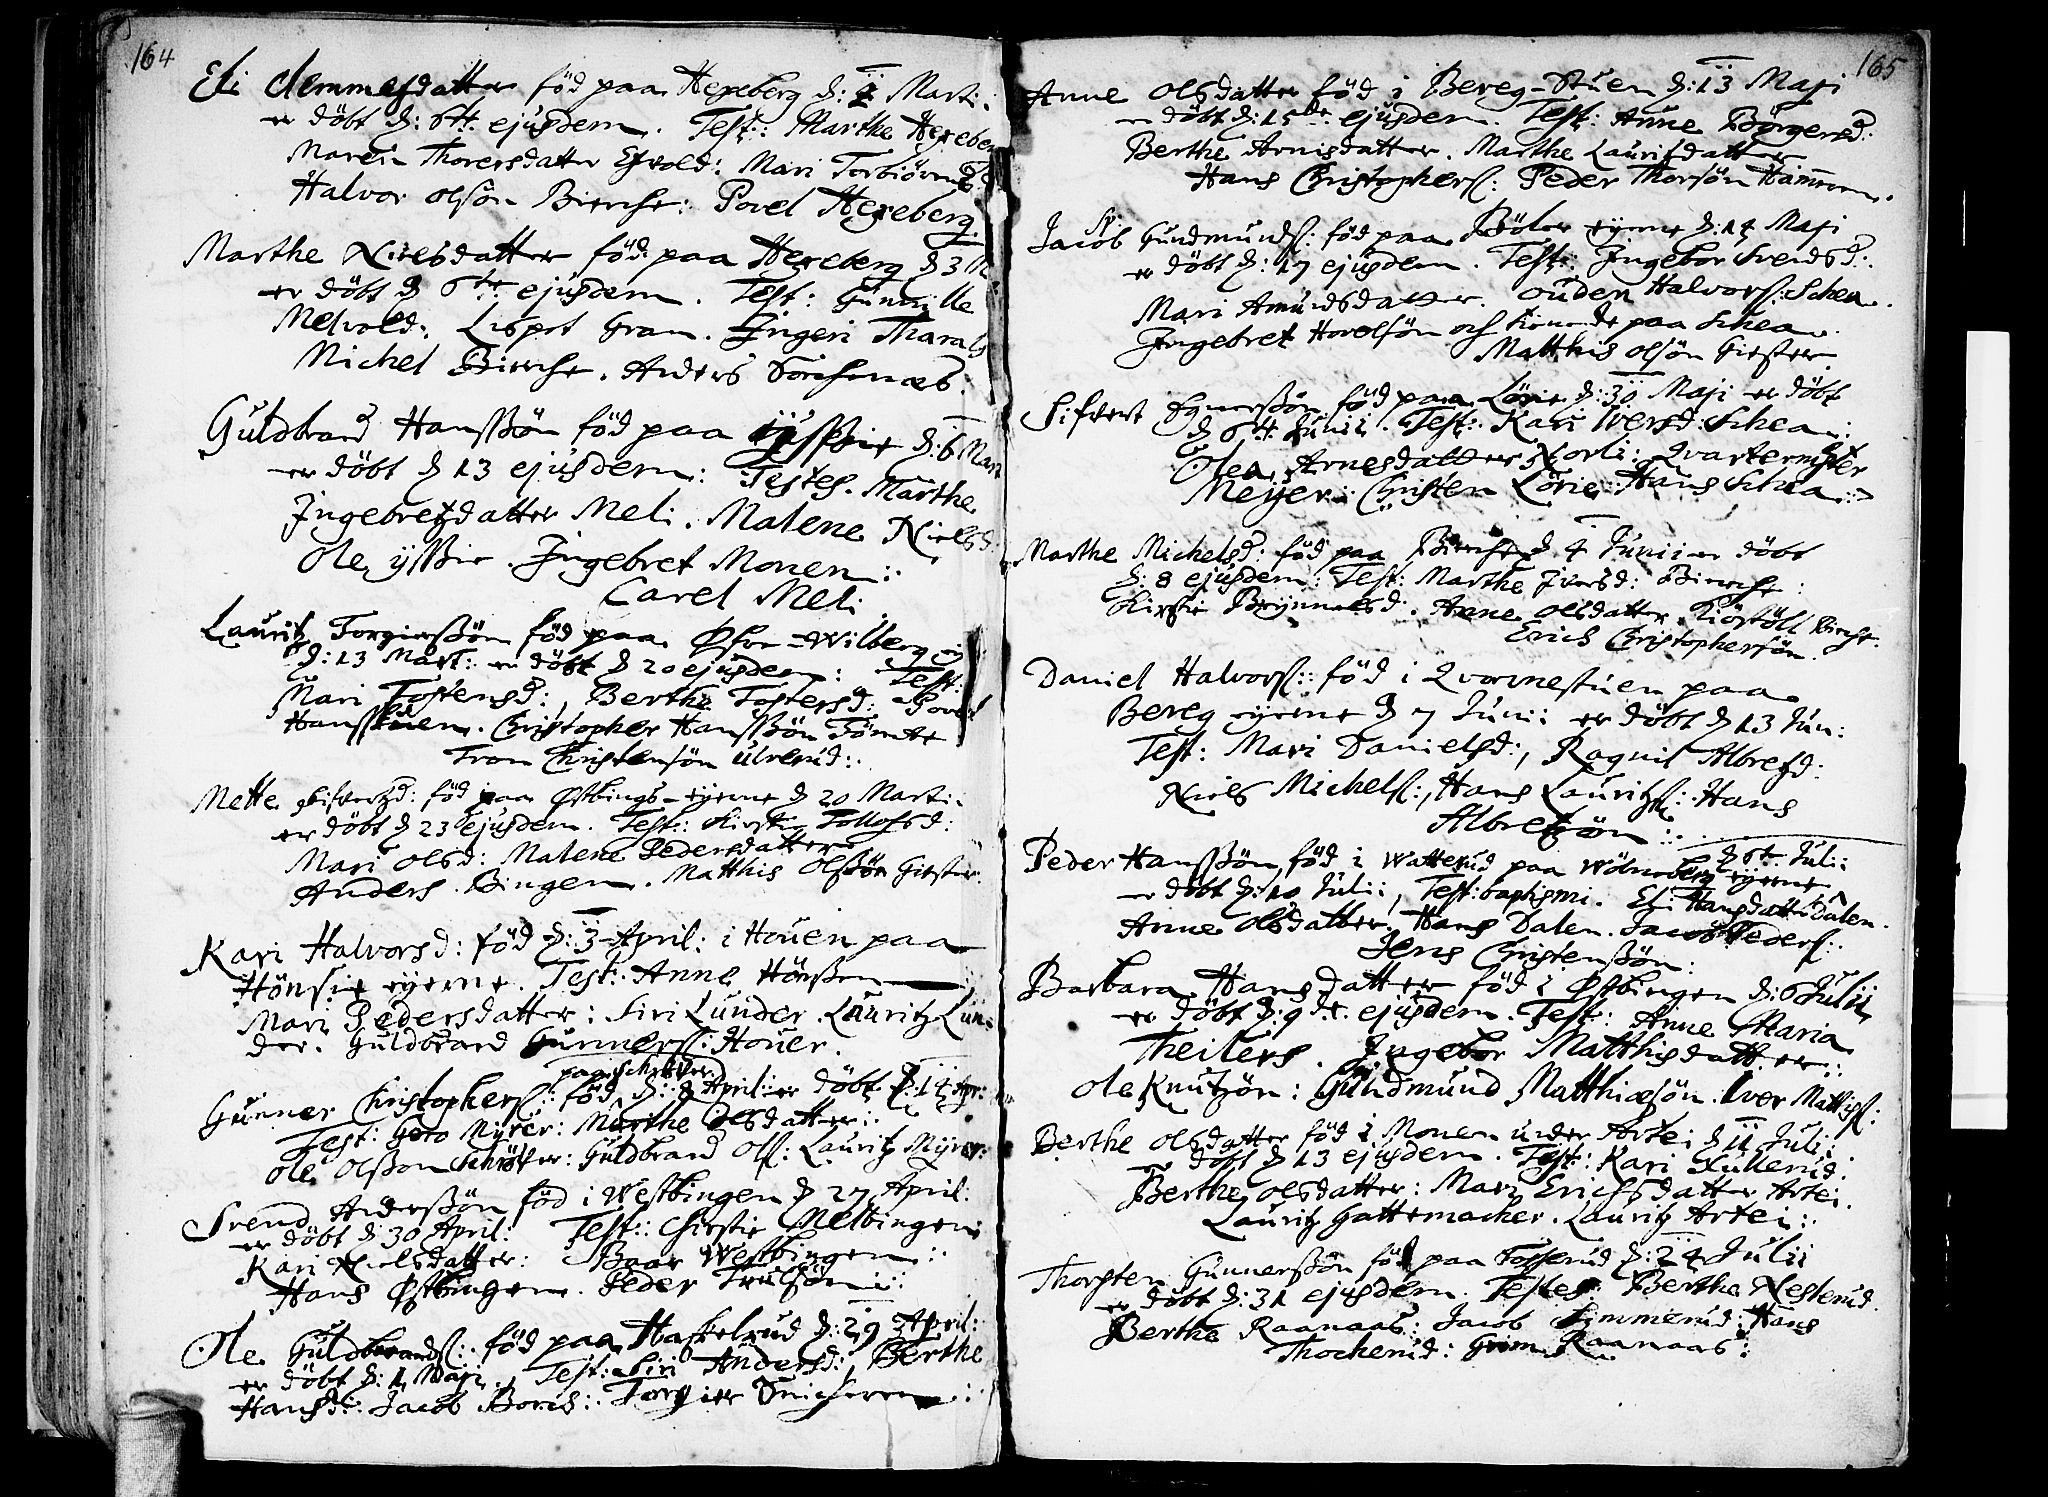 164
Eli Clemmesdatter föd paa Hexeberg d: 2 Marti:
er döbt d: 6te ejusdem. Test:: Marthe Hexeberg
Maren Thoresdatter Mari Torbiörns
Halvor Olsön Bierche: Povel Hexeberg.
Marthe Nielsdatter föd paa Hexeberg d 3
er döbt d 6te ejusdem. Test: Gunnille
Melvold: Lispet Gram. Ingeri Tharals
Michel Bierche. Anders
Guldbrand Hanssön föd paa d: 6 Mart
er döbt d 13 ejusdem: Testes. Marthe
Ingebretzdatter Meli. Malene Nielsd
Ole Ingebret Monen::
Carel Meli
Lauritz Torgierssön föd paa Øfre-Wilberg
d: 13 Mart: er döbt d 20 ejusdem: Test:
Mari Tostensd:, Berthe Tostersd: Povel
Hansstuen. Christopher Hanssön Tömte
Tron Christensön Ulverud:.
Mette föd paa Østbings-eyerne d 20 Marti:
er döbt d 23 ejusdem. Test:: Kirstie Tollofsd:
Mari Olsd: Malene Pedersdatter
Anders Bingen. Matthis Olssön Giester.
Kari Halvorsd: föd d: 3 April: i Houen paa
Hönsie eyerne. Test: Anne Hönsien
Mari Pedersdatter: Siri Lunder. Lauritz Lun-
der. Guldbrand Gunners: Houer.
paa Schitter
Gunner Christophers: föd d: 8 April: er döbt d: 14 Apr:
Test: Goro Myrer: Marthe Olsdatter:
Ole Olsson Guldbrand Ols: Lauritz Myrer:
Svend Anderssön föd i Westbingen d 27 April:
er döbt d: 30 April: Test:: Chirstie Melbingen
Kari Nielsdatter: Baar Westbingen::
Hans Østbingen. Peder Trulsön::
Ole Guldbrands:. föd paa Haskelrud d: 29 April:
er döbt d: 1 Maji., Test: Siri Andersd:, Berthe
Hansd:. Jacob Borch:. Torgier Snicheren::
165
Anne Olsdatter föd i Bereg-Stuen d: 13 Maji
er döbt d: 15de ejusdem. Test: Anne Börgersd:
Berthe Arnisdatter. Marthe Lauritzdatter
Hans Christophers: Peder Thorsön Hammeren.
Sp:
Jacob Gundmunds: föd paa Böler eyerne d: 14 Maji
er döbt d: 17 ejusdem. Test: Ingebor Svendsd:.
Mari Amundsdatter. Ouden Halvors: Schea.
Ingebret Hovelsön och paa Schea.
Matthis Olsön Giester
Sifvert föd paa Lörie d: 30 Maji er döbt
d 6te Junii. Test: Kari Iversd: Schea:
Olea Arnesdatter Norli: Qvartermester
Meyer: Christen Lörie: Hans Schea::
Marthe Michelsd: föd paa Bierche d 4 Junii er döbt
d: 8 ejusdem: Test: Marthe Iversd: Bierche:
Kirstie Brynnelsd. Anne Olsdatter. Kiöstöll Birche.
Erich Christophersön.
Daniel Halvors:: föd i Qvernestuen paa
Bereg eyerne d 7 Junii er döbt d 13 Jun:
Test: Mari Danielsd:, Ragnil Albretzd:
Niels Michels:, Hans Lauritz: Hans
Albretzön::.
Peder Hanssön föd i Watterud paa Wölneberg eyerne d 6te Julii
er döbt d: 10 Julii, Test: baptismi. Eli Hansdatter Dalen.
Anne Olsdatter. Hans Dalen. Jacob Peders:.
Jens Christenssön:
Barbara Hansdatter föd i Østbingen d: 6 Julii
er döbt d: 9de ejusdem. Test:: Anne Maria
Theilers. Ingebor Matthisdatter::
Ole Knutzön: Gundmund Matthiæsön. Iver Mattis:
Berthe Olsdatter föd i Monen under Artei d 11 Julii
er döbt d 13 ejusdem. Test:: Kari Lullerud:
Berthe Olsdatter: Mari Erichsdatter Artei.
Lauritz Gattemacher. Lauritz Artei:.
Thorsten Gunnerssön föd paa Fosserud d: 24 Julii
er döbt d: 31 ejusdem. Testes: Berthe Nesterud.
Berthe Raanaas:. Jacob Limmerud: Hans
Thocherud: Grim Raanaas: